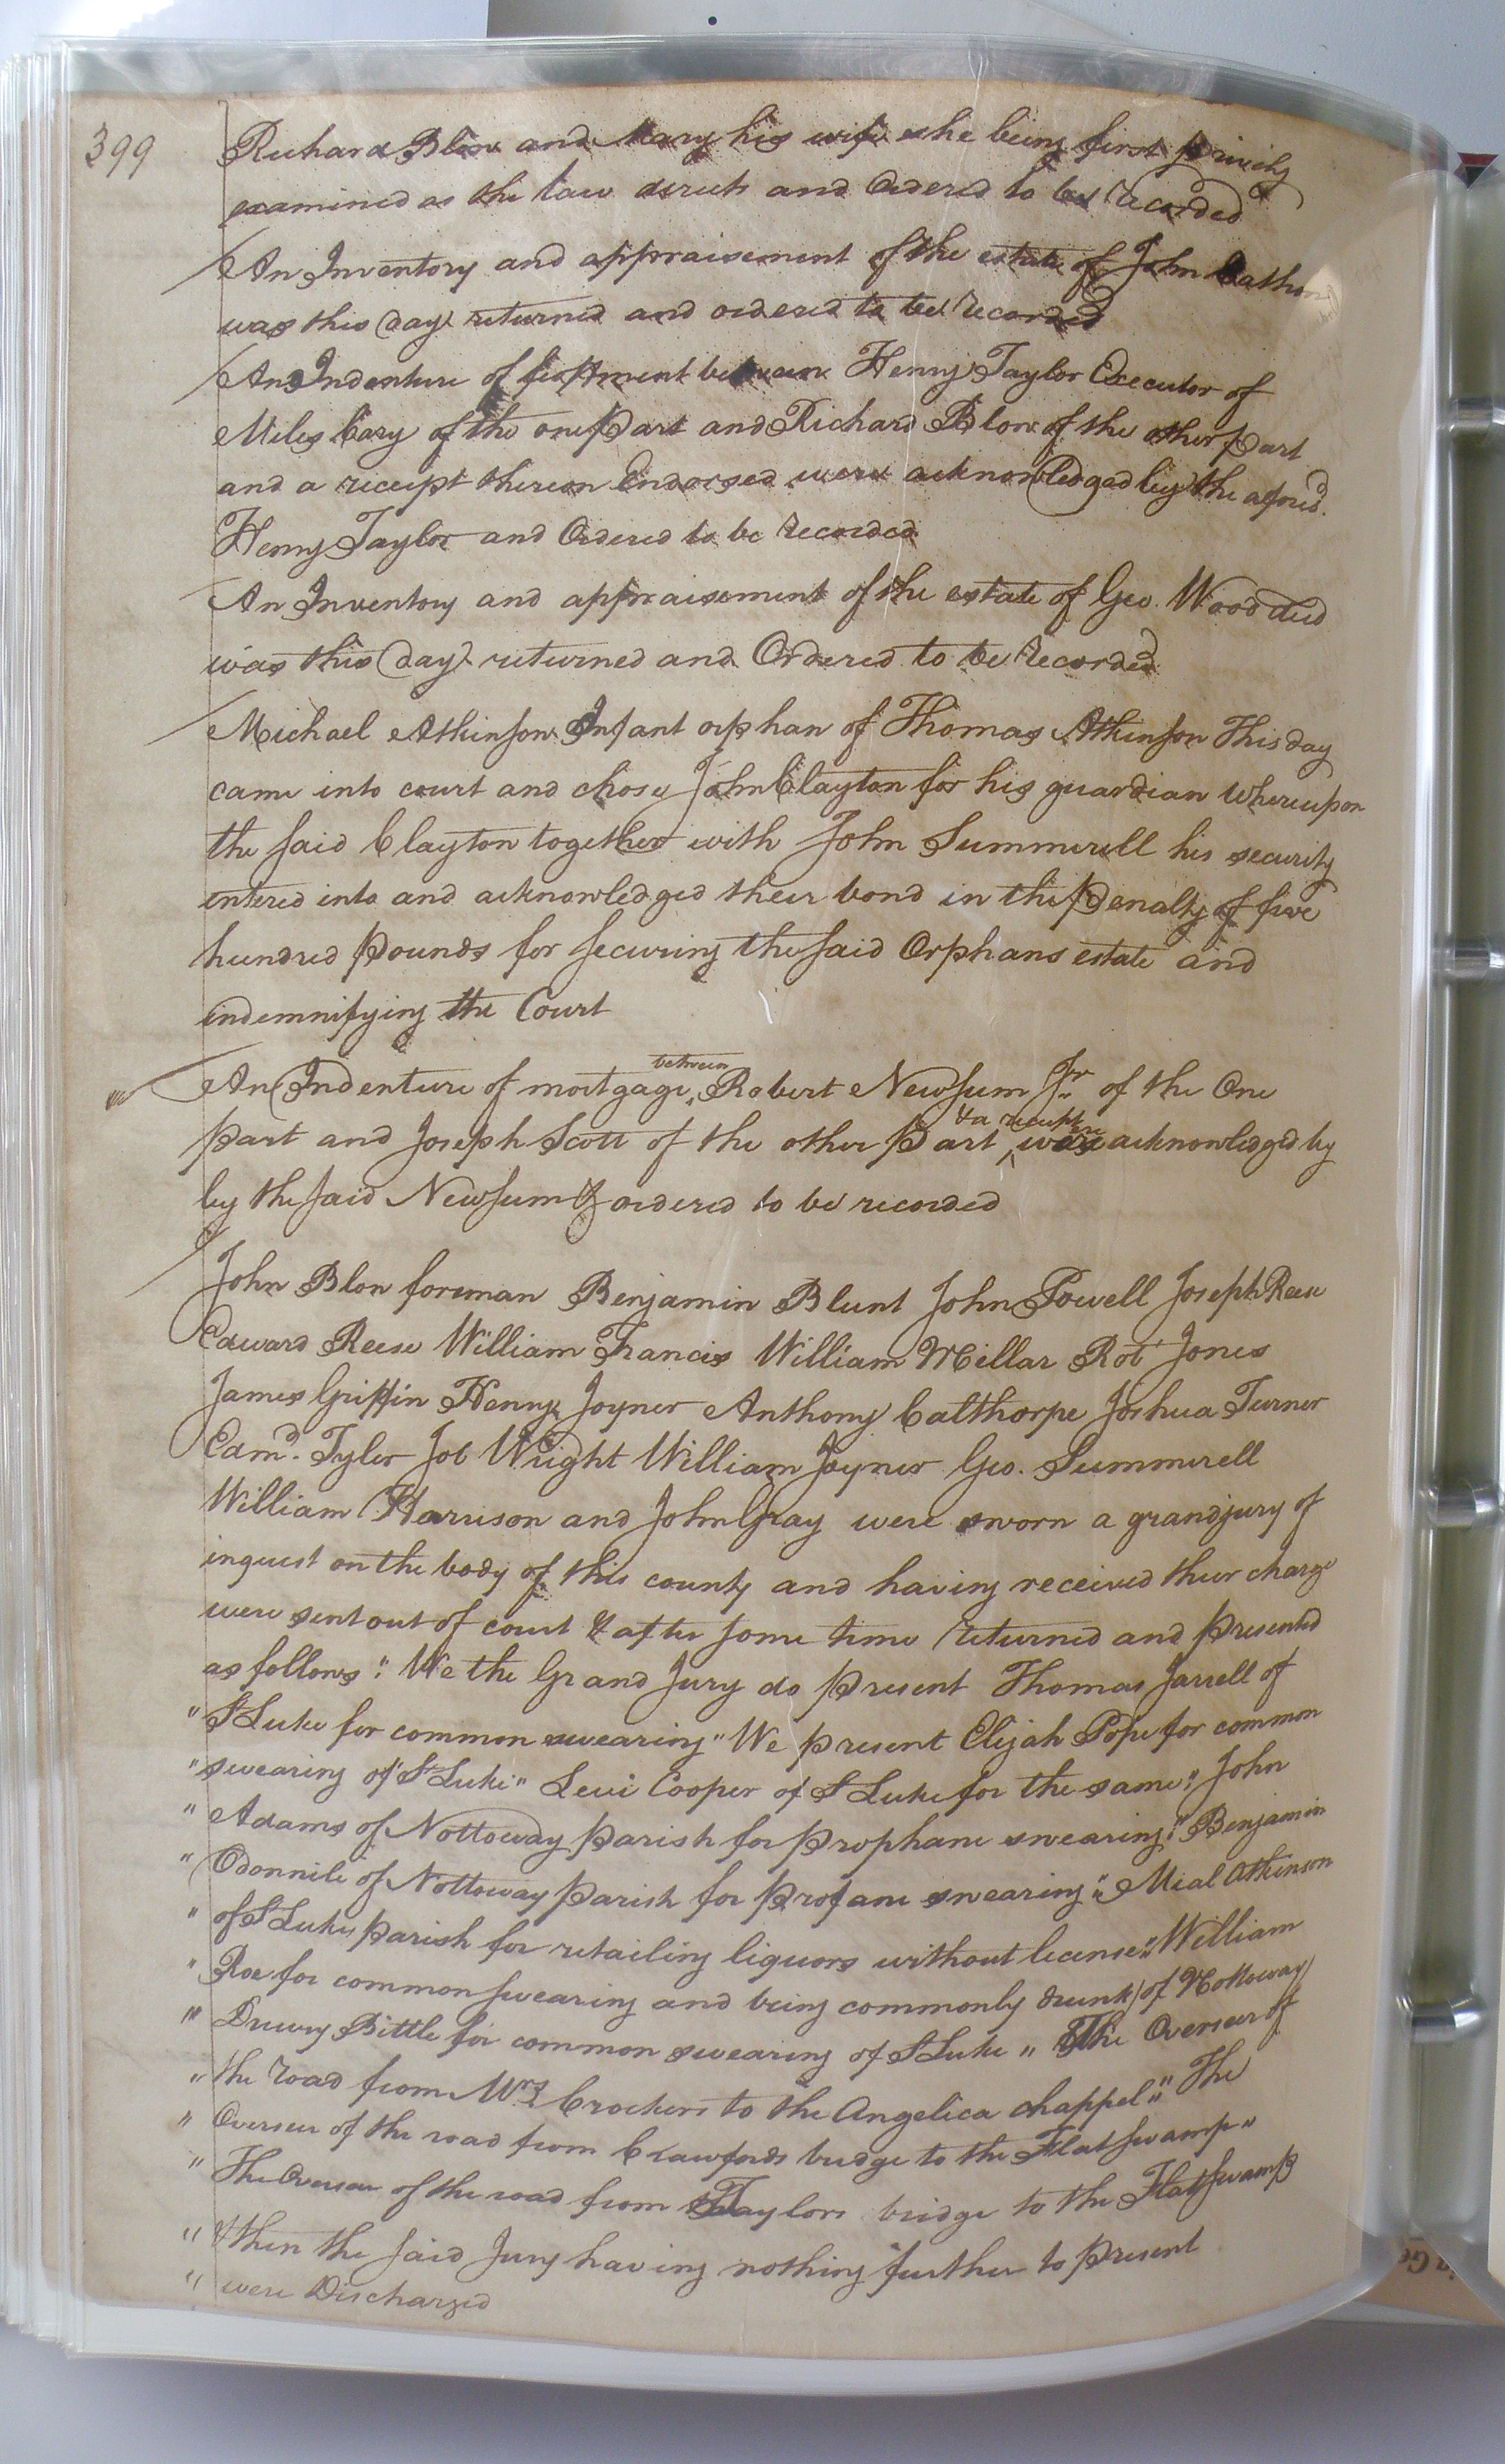 399
Richard Blow and Mary his wife she being first privily
examined as the law directs and Ordered to be recorded
An Inventory and appraisement of the estate of John
was this day returned and ordered to be recorded
An Indenture of feoffment between Henry Taylor Executor of
Miles Cary of the one part and Richard Blow of the other part
and a receipt thereon Endorsed were acknowledged by the aforesd.
Henry Taylor and Ordered to be recorded
An Inventory and appraisement of the estate of Geo. Wood decd
was this day returned and Ordered to be recorded
Michael Atkinson Infant orphan of Thomas Atkinson This day
came into court and chose John Clayton for his guardian whereupon
the said Clayton together with John Summerell his security
entered into and acknowledged their bond in the penalty of five
hundred pounds for securing the said Orphans estate and
indemnifying the Court
between
An Indenture of mortgage, Robert Newsum Jr. of the One
& a receipt
part and Joseph Scott of the other part were acknowledged by
by the said Newsum & ordered to be recorded
John Blow foreman Benjamin Blunt John Powell Joseph Reese
Edward Reese William Francis William Millar Rot Jones
James Griffin Henry Joyner Anthony Calthorpe Joshua Turner
Edmd. Tyler Job Wright William Joyner Geo. Summerell
William Harrison and John Gray were sworn a grandjury of
inquest on the body of this county and having received their charge
were sent out of court & after some time returned and presented
as follows: We the Grand Jury do present Thomas Jarrell of
" St Luke for common swearing" We present Elijah Pope for common
" swearing of St Luke" Levi Cooper of St Luke for the same" John
" Adams of Nottoway parish for prophane swearing" Benjamin
" Odonnile of Nottoway parish for profane swearing" Mial Atkinson
" of St Lukes parish for retailing liquors without license" William
" Roe for common swearing and being commonly drunk of Nottoway
" Drewry Bittle for common swearing of St Luke " The Overseer of
" the road from Mrs Crockers to the Angelica chappel" The
" Overseer of the road from Crawfords bridge to the Flat swamp"
" The Overseer of the road from Taylors bridge to the Flat swamp
" & then the said Jury having nothing further to present
" were Discharged